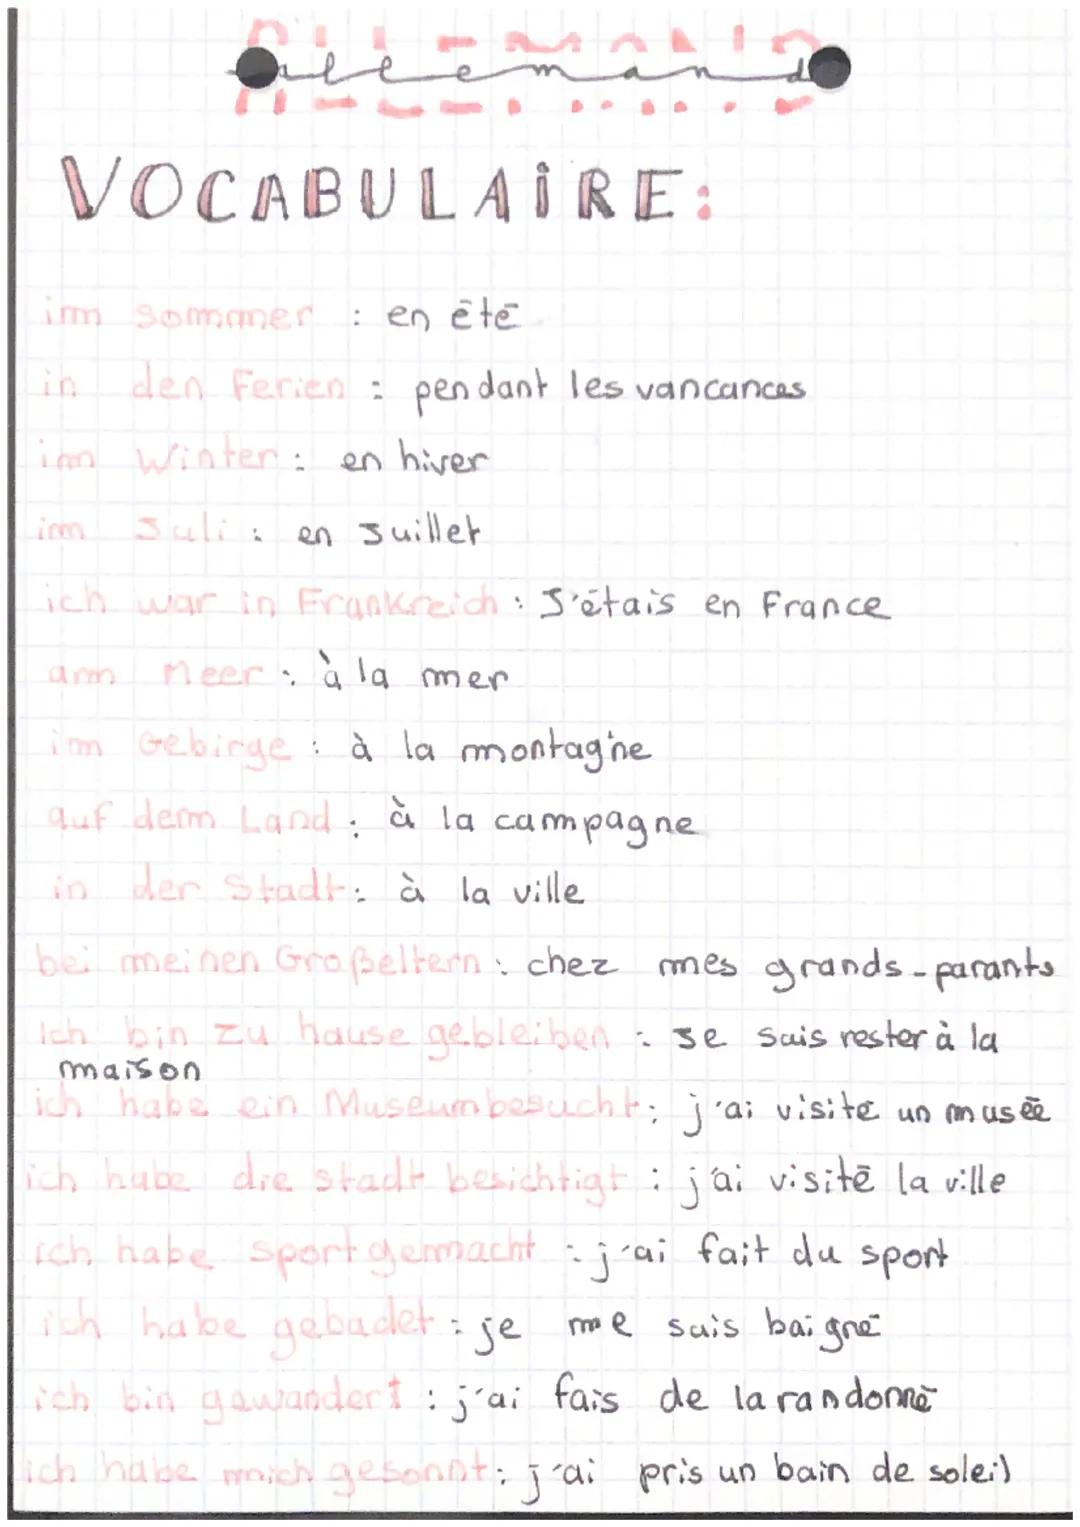 allemand
VOCABULAIRE:
im sommer : en été
in den Ferien : pendant les vancances
im Winter : en hiver
im Juli : en Juillet
ich war in Frankreich : J'étais en France
am Meer : à la mer
im Gebirge : à la montagne
auf dem Land : à la campagne
in der Stadt : à la ville
bei meinen Großeltern : chez mes grands-parants
Ich bin zu hause gebleiben : Je suis rester à la
maison
ich habe ein Museum besucht : j'ai visité un musée
ich habe die stadt besichtigt : j'ai visité la ville
ich habe sport gemacht : j'ai fait du sport
ich habe gebadet : je me suis baigné
ich bin gewandert : j'ai fais de la randonné
ich habe mich gesonnt : j'ai pris un bain de soleil